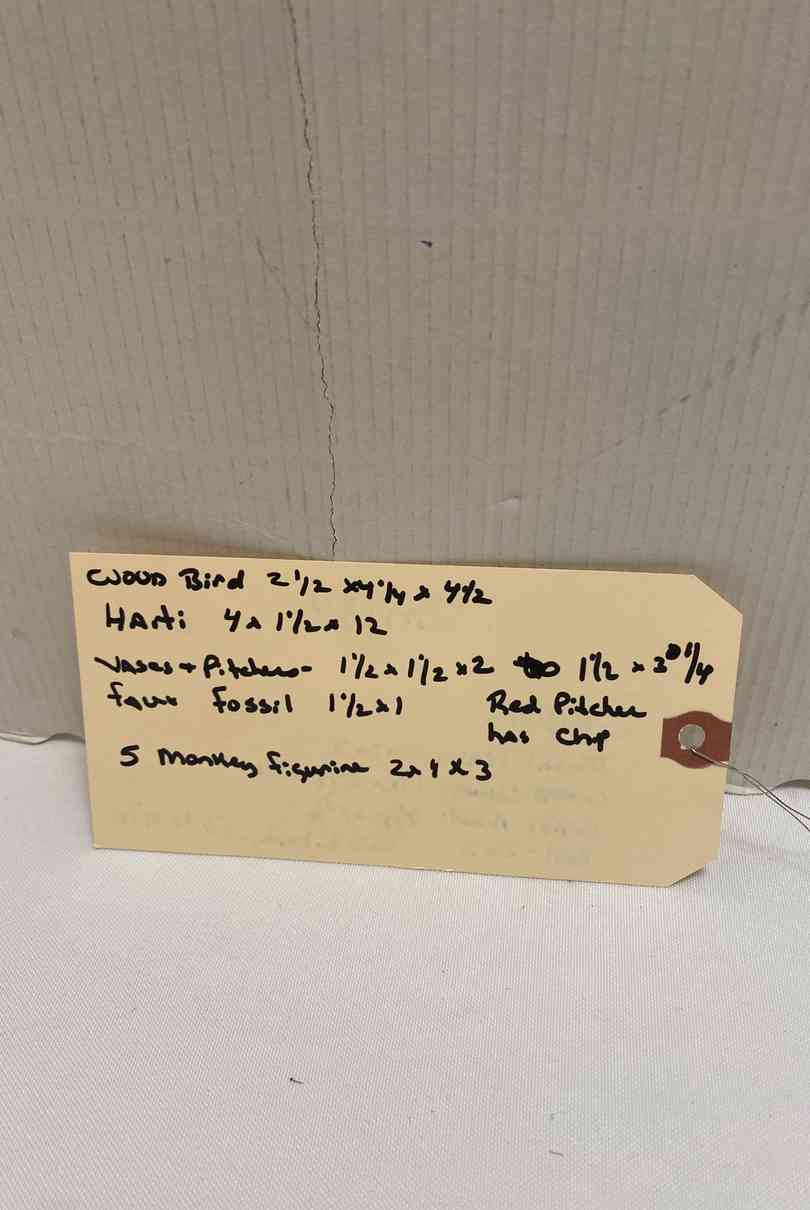 Wood Bird 2 1/2 x 4 1/4 x 4 1/2
HAiti 4 x 1 1/2 x 12
Vases + Pitchers - 1 1/2 x 1 1/2 x 2 to 1 1/2 x 3 1/4
faux fossil 1 1/2 x 1 Red Pitcher
has Chip
5 Monkey figurine 2 x 4 x 3